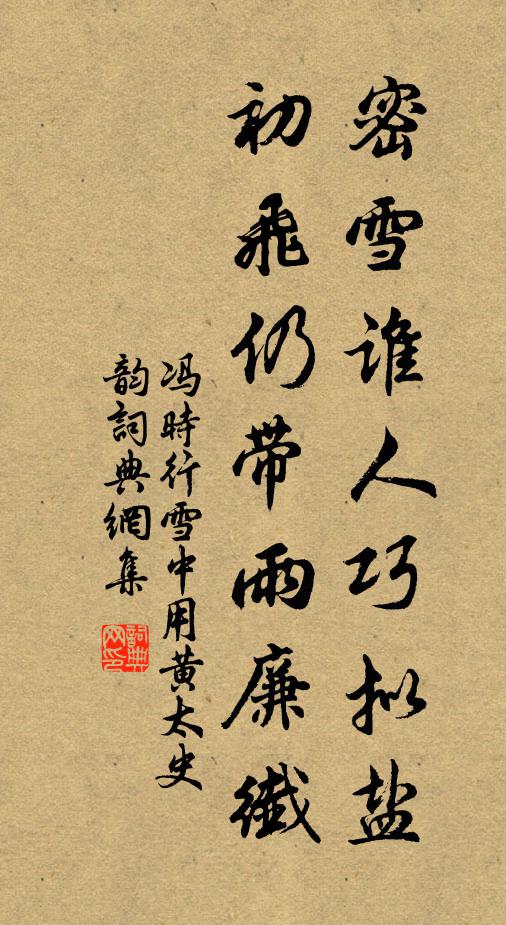 密雪谁人巧拟盐
初飛仍带雨廉纖
冯時行雪中用黄太史
韵詞典網集
詞典网印